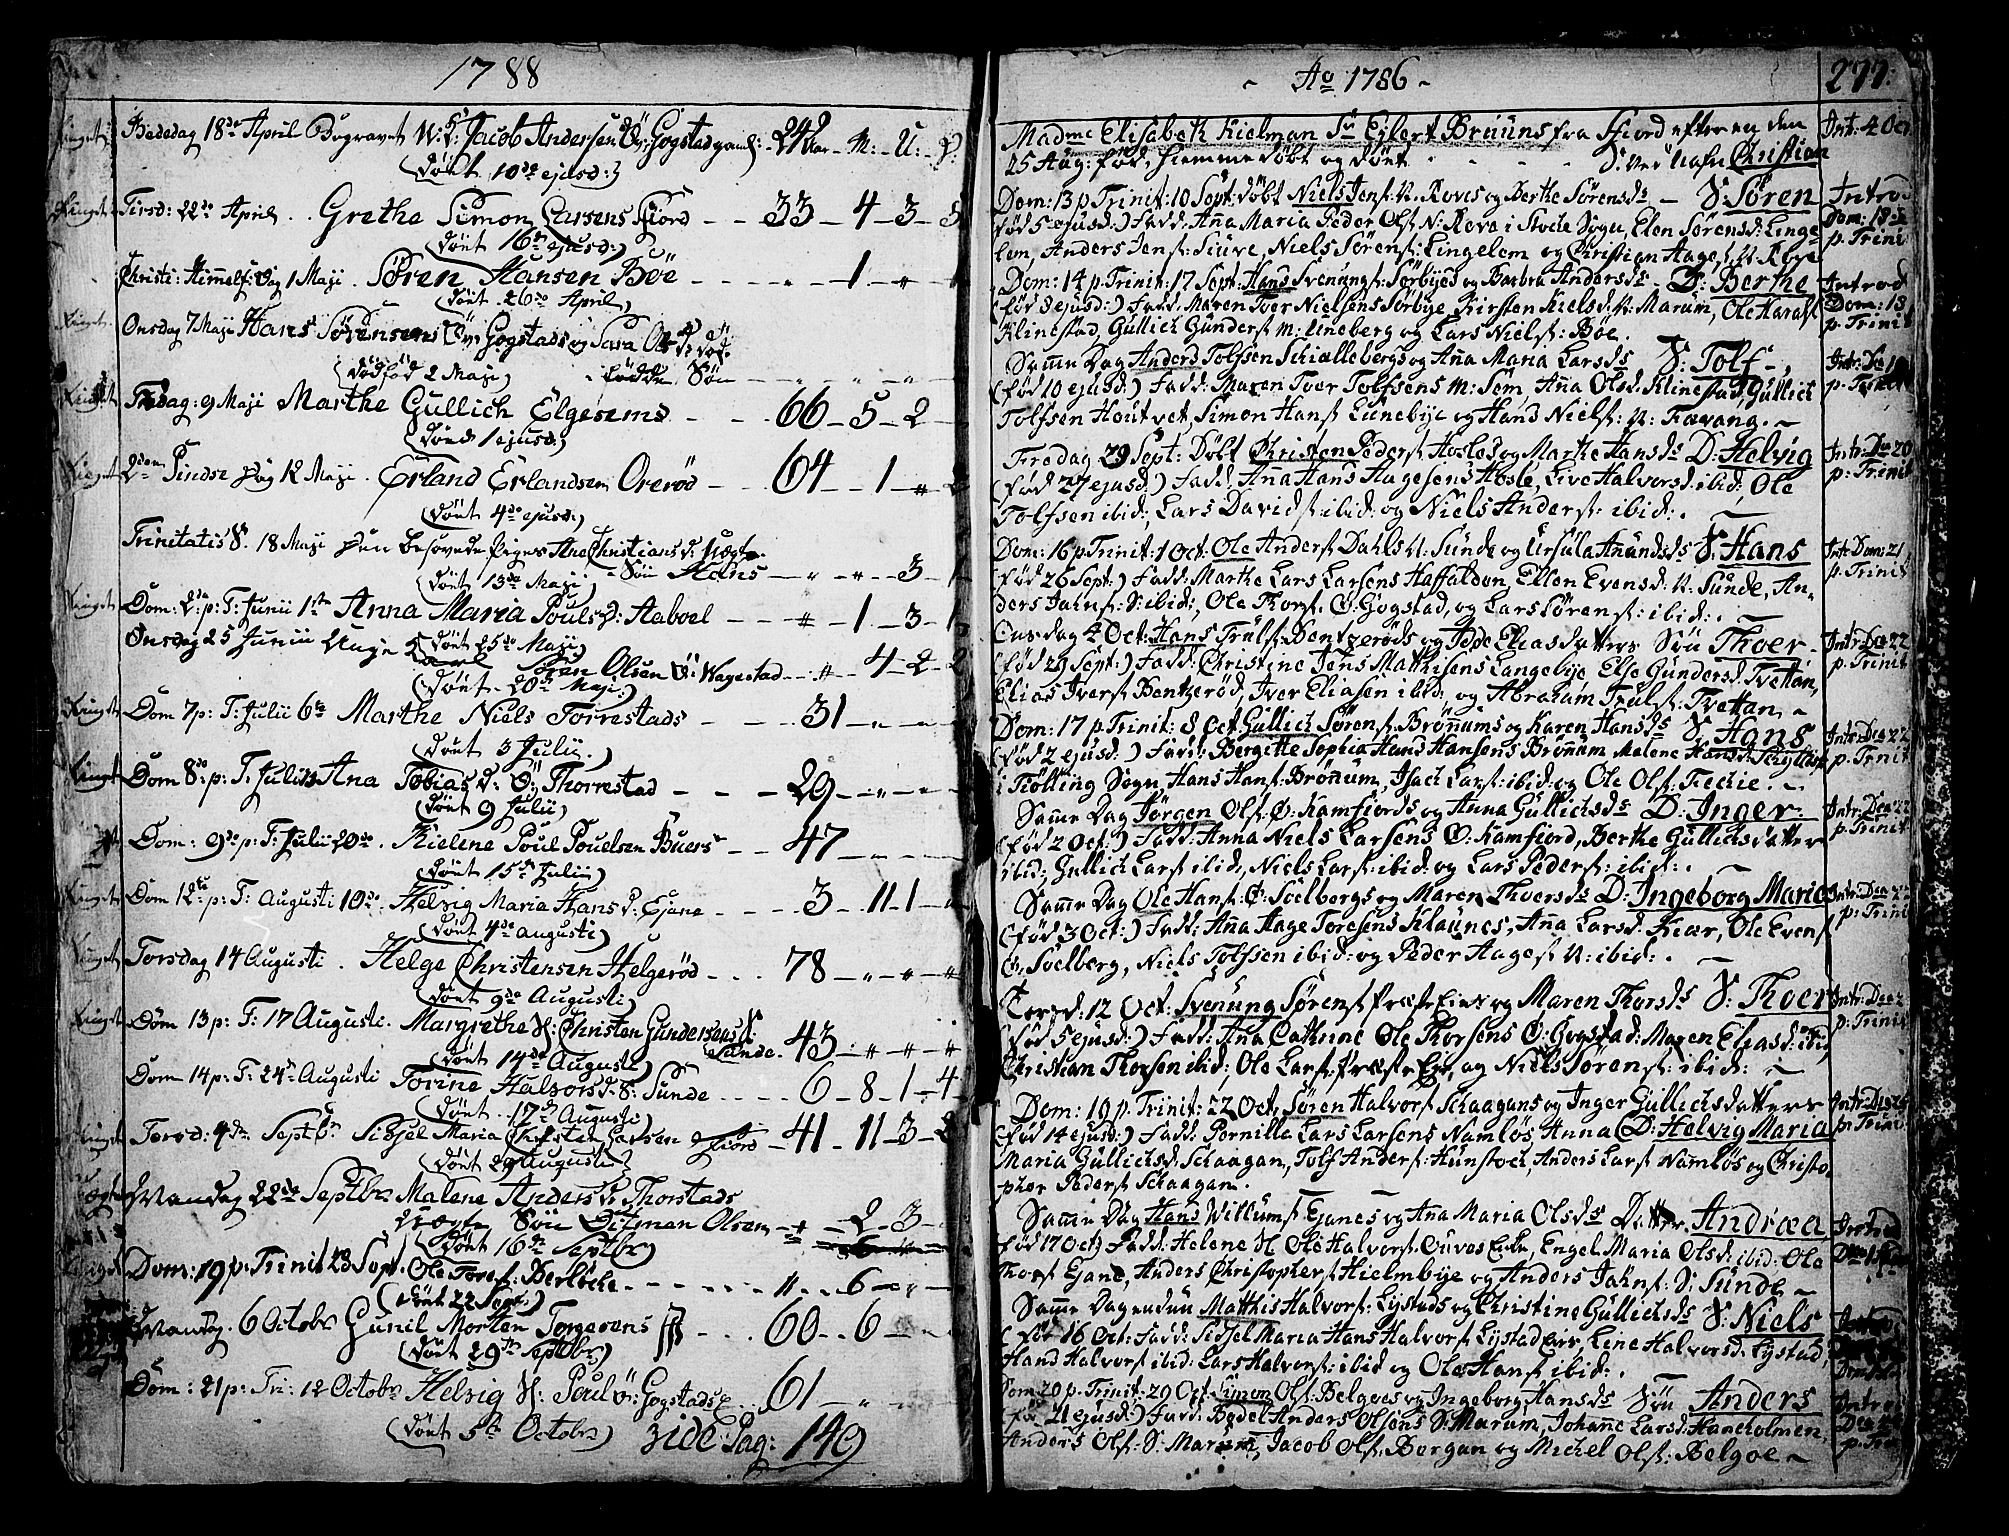 1788
Bededag 18de April Begravet N: S: Jacob Andersen Øv: Gogstad gaml: 24 Aar - M: - U: - D:
(døet 10de ejusd:)
Tirsd: 22de April . . Grethe Simon Larsens Fiord - - 33 - 4 - 3 -
(døet 16de ejusd:)
Christi: Himmelf: Dag 1 Maji . Søren Hansen Bøe - - - - 1 - " -
(døet 26de April)
Onsdag 7 Maji Hans Sørensens Øv: Gogstads og Sara
(dødfød 2 Maji) fødde Søn - - " - " - " -
Fredag: 9 Maji Marthe Gullich Elgesems - - 66 - 5 - 2 -
(døed 1 ejusd:)
2den Pindse Dag 12 Maji . Erland Erlandsen Orerød - - 64 - 1 - " -
(døet 4de ejusd:)
Trinitatis S. 18 Maji den besovede Piges Ane Christians d: Uægte
(døet 13de Maji) Søn Hans - " - " - 3 - 1
Dom: 2de p: T: Junii 1ste Anna Maria Pouls D: Aaboel - - " - 1 - 3 - 1
(døet 25de Maji)
Onsdag 25 Junii Uægte
Søren Olsen Ø: Wegestad - - " - 4 - 2 - 2
(døet - 20de Maji:)
Dom 7 p: T: Julii 6te Marthe Niels Torrestads - - - 31 - " - "
(døet 3 Julii.)
Dom 8de: p: T: Julii Ana Tobias d: Ø: Thorrestad - - - 29 - " - "
(døet 9 Julii)
Dom: 9de p: T: Julii 20de . Kielene Poul Pouelsen Buers - - 47 - - -
(døet 15de Julii)
Dom 12te: p: T: Augusti 10de . Helvig Maria Hans d: Ejane - - - - 3 - 11 - 1 -
(døet 4de augusti)
Torsdag 14 Augusti . Helge Christensen Helgerød - - - 78 - " - " - "
(døet 9de Augusti)
Dom 13 p: T: 17 Augusti . Margrethe S: Christen Gundersens S:
Sunde . 43 - " - " - "
(døet 14de Augusti)
Dom 14 p: T: 24de Augusti Torine Halvors d: S: Sunde - - - - 6 - 8 - 1 - 4
(døet . . 17de Augusti)
Torsd: 4de Septbr Sidsel Maria Christen Larsen Fiord - 41 - 11 - 3 - 2
(døet 29 Augusti)
Mandag 22de Septbr Malene Anders d: Thorstads
Uægte Søn Ditman Olsen - + - 2 - 3 -
(døet 16de Septbr)
Dom: 19 p: Trinit 28 Sept: Ole Tores: Berløche - - - - " - 6 - " -
(døet 22 Sept:)
Mandag . 6 Octobr Gunil Morten Torgersens - - - 60 - 6 - -
(døet 29de Septbr)
Dom: 21 p: Tri: 12 Octobr Helvig S: Poul Ø: Gogstads . . 61 - " -
(døet 5te Octobr) vide Pag: 149
~ Ao 1786 ~ 277.
Madme Elisabeth Kielman Sr Ejlert Brüuns fra Fiord efter en den Int: 4 Oct
25 Aug: fød, hiemmedøbt og døet - - - S: ved Nafn Christian
Dom: 13 p Trinit: 10 Sept: døbt Niels Jens: N. Roves og Berthe Sørensds - S: Søren Introd
(fød 5 ejusd:) Fadd: Ana Maria Peder Ols: N: Rova i Stoche Sogn, Elen Sørensd: Linge- Dom: 18de
lem, Anders Jens: Siuve, Niels Sørens: Lingelem og Christian Aages: N: Roye p. Trinit
Dom: 14 p Trinit: 17 Sept: Hans Svenungs: Sørbyes og Barbra Andersds - D: Berthe Introd
(fød 8 ejusd:) Fadd: Maren Iver Nielsens Sørbye, Kirsten Nielsd: N: Marum, Ole Haralds Dom: 18
Klinestad, Gullich Gunders: M: Lineberg og Lars Niels: Bøe. p. Trinit
Same Dag Anders Tolfsen Schiallebergs og Ana Maria Larsds S: Tolf - Intr: Do 19
(fød 10 ejusd:) Fadd: Maren Iver Tolfsens M: Søm, Ana Olsd: Klinestad, Gullich p. Trinit
Tolfsen Houtvet, Simon Hans: Lunebye og Hans Niels: N: Favang. ~
Fredag 29 Sept: Døbt Christen Peders: Hasles og Marthe Hansds D: Helvig Intr: Do 20
(fød 27 ejusd:) Fadd: Ana Hans Aagesens Hasle, Live Halvorsd: ibid, Ole p: Trinit
Tolfsen ibid:, Lars Davids: ibid: og Niels Anders: ibid: .
Dom: 16 p Trinit: 1 Oct: Ole Anders: Dahls N: Sunde og Ursula Amundsds S: Hans Intr: Dom: 21
(fød 26 Sept:) Fadd: Marthe Lars Larsens Haffaldon, Ellen Evensd: N: Sunde, An- p. Trinit
ders Jahns: S: ibid:, Ole Thors: Ø: Gogstad, og Lars Sørens: ibid: .
Onsdag 4 Oct: Hans Truls: Bentzerøds og Inge Eliasdatters Søn Thoer - Intr: Do 22
(fød 29 Sept:) Fadd: Christine Jens Matthisens Langebye Else Gundersd: Tvettan, p. Trinit
Elias Ivers: Bentzerød, Iver Eliasen ibid, og Abraham Truls: Tvettan ~
Dom: 17 p Trinit: 8 Oct Gullich Sørens: Brønnums og Karen Hansds S: Hans Intr: Do 22
(fød 2 ejusd:) Fadd: Bergitte Sophia Hans Hansens Brønum Malene Hansd:
i Tiølling Sogn, Hans Hans: Brønum, Isach Lars: ibid: og Ole Ols: Fechie . ~ p. Trinit
Same Dag Jørgen Ols: Ø: Kamfiords og Anna Gullichsds D: Inger - Intr: Do 22
(fød 2 Oct:) Fadd: Anna Niels Larsens Ø: Kamfiord, Berthe Gullichsdatter p. Trinit
ibid:, Gullich Lars: ibid, Niels Lars: ibid: og Lars Peders: ibid: .
Same Dag Ole Hans: Ø: Soelbergs og Maren Thoersds D: Ingeborg Maria Intr: Do 22
(fød 3 Oct:) Fadd: Ana Hage Toresens Klaunes, Ana Larsd: Kiær, Ole Evens: p: Trinit
Ø: Soelberg, Niels Tolfsen ibid: og Peder Aages: N: ibid: .
Torsd: 12 Oct: Svenung Sørens: Præste Eies og Maren Thorsds S: Thoer Intr: Do 2
(fød 5 ejusd:) Fadd: Ana Cathrine Ole Thorsens Ø: Gogstad: Maren Eliasd: ibid p: Trinit
Christian Thorsen ibid:, Ole Lars: Præste Eie, og Niels Sørens: ibid: ~
Dom: 19 p. Trinit: 22 Oct, Søren Halvors: Schaagans og Inger Gullichsdatters Intr: Do 25
(fød 14 ejusd:) Fadd: Pernilla Lars Larsens Namløs, Anna (D: Helvig Maria p: Trinit
Maria Gullichsd: Schaagan, Tolf Anders: Hunstoch, Anders Lars: Namløs og Christo-
pher Peders: Schaagan.
Same Dag Hans Willums: Ejanes og Ana Maria Olsds Datter Andræa Introd
fød 17 Oct) Fadd: Helene S: Ole Halvors: Ouves Enke, Engel Maria Olsd: ibid: Ole
Thors: Ejane, Anders Christophers: Hielmbye og Anders Jahns: S: Sunde ~
Same Dag endnu Matthis Halvors: Lystads og Christine Gullichsds S: Niels Introd
(fød 16 Oct: Fadd: Sidsel Maria Hans Halvors: Lystad Eie, Lene Halvorsd: Lystad,
Hans Halvors: ibid: Lars Halvors: ibid og Ole Hans: ibid: .
Dom: 20 p: Trinit: 29 Oct: Simon Ols: Belgoes og Ingeborg Hansds Søn Anders Introd
(fød 21 ejusd:) Fadd: Bodel Anders Olsens S: Marum, Johane Larsd: Haneholmen,
Anders Ols: S: Marum, Jacob Ols: Borgan og Michel Ols: Belgoe ~